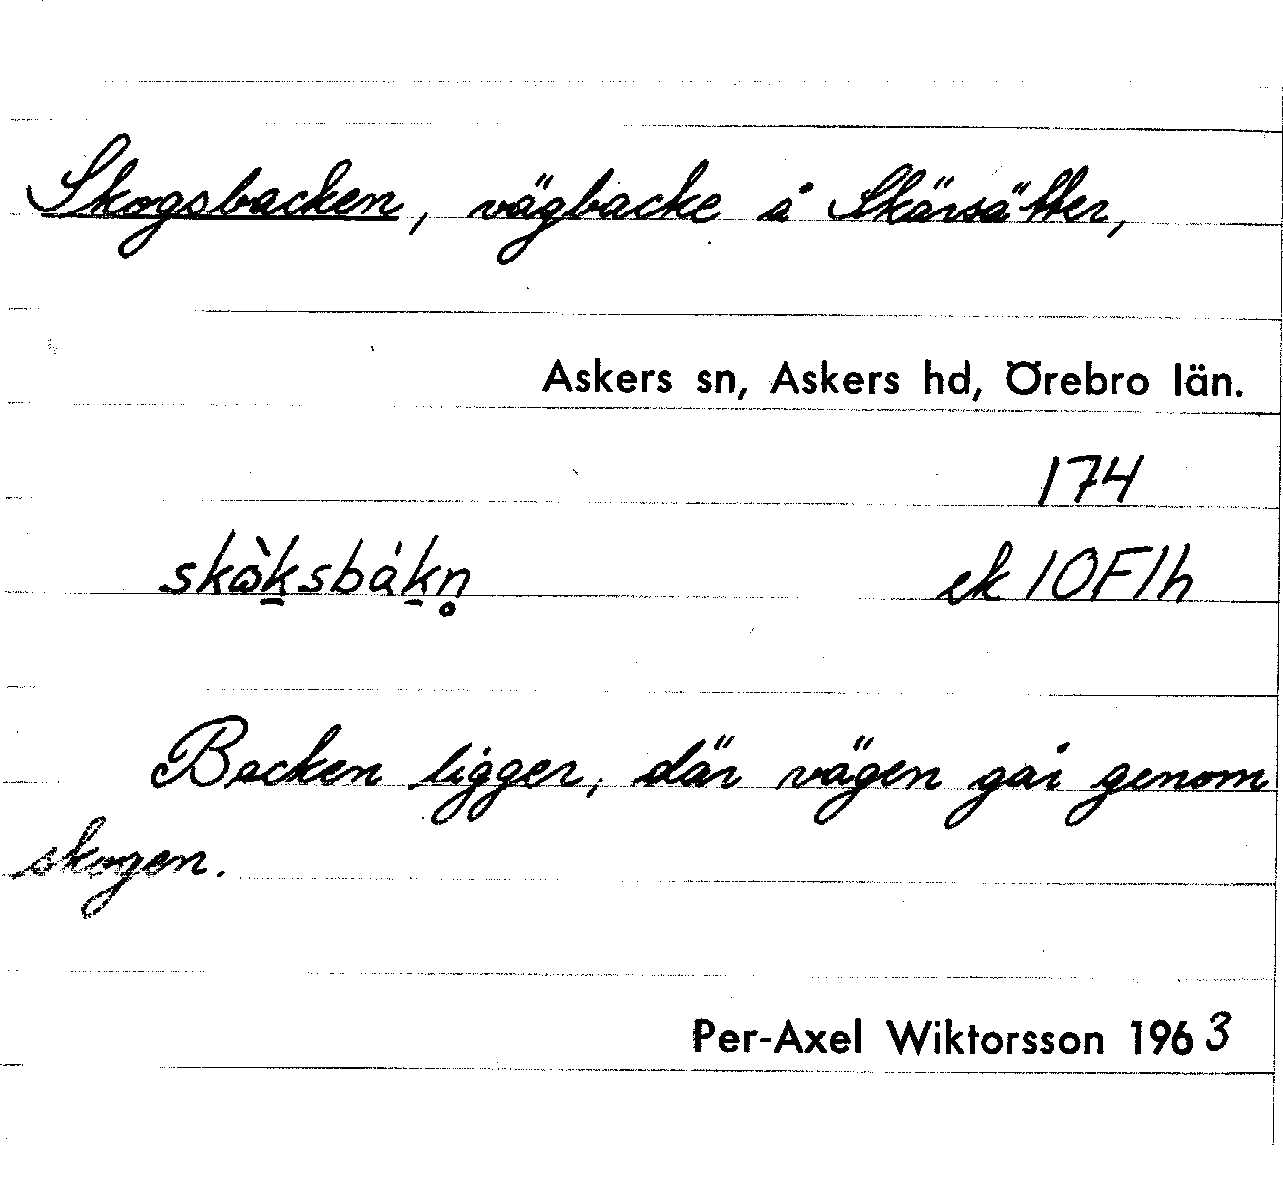 Skogsbacken, vägbacke å Skärsätter,
Askers sn, Askers hd, Örebro län.
174
skὼk̠sbákn̥ ek 10F1h
Backen ligger, där vägen går genom
skogen.
Per-Axel Wiktorsson 1963